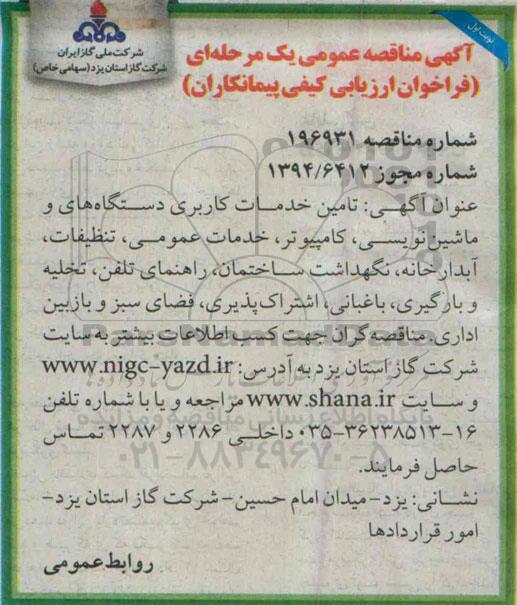 نوبت اول
شرکت ملی گاز ایران
شرکت گاز استان یزد (سهامی خاص)
آگهی مناقصه عمومی یک مرحله‌ای
(فراخوان ارزیابی کیفی پیمانکاران)
شماره مناقصه ۱۹۶۹۳۱
شماره مجوز ۱۳۹۴/۶۴۱۲
عنوان آگهی: تامین خدمات کاربری دستگاه‌های و
ماشین نویسی، کامپیوتر، خدمات عمومی، تنظیفات،
آبدارخانه، نگهداشت ساختمان، راهنمای تلفن، تخلیه
و بارگیری، باغبانی، اشتراک‌پذیری، فضای سبز و بازبین
اداری. مناقصه‌گران جهت کسب اطلاعات بیشتر به سایت
شرکت گاز استان یزد به آدرس: www.nigc-yazd.ir
و سایت www.shana.ir مراجعه و یا با شماره تلفن
۱۶-۰۳۵-۳۶۲۳۸۵۱۳ داخلی ۲۲۸۶ و ۲۲۸۷ تماس
حاصل فرمایند.
نشانی: یزد- میدان امام حسین- شرکت گاز استان یزد-
امور قراردادها
روابط عمومی
پایگاه اطلاع رسانی مناقصه و مزایده
۰۲۱-۸۸۳۴۹۶۷۰-۵